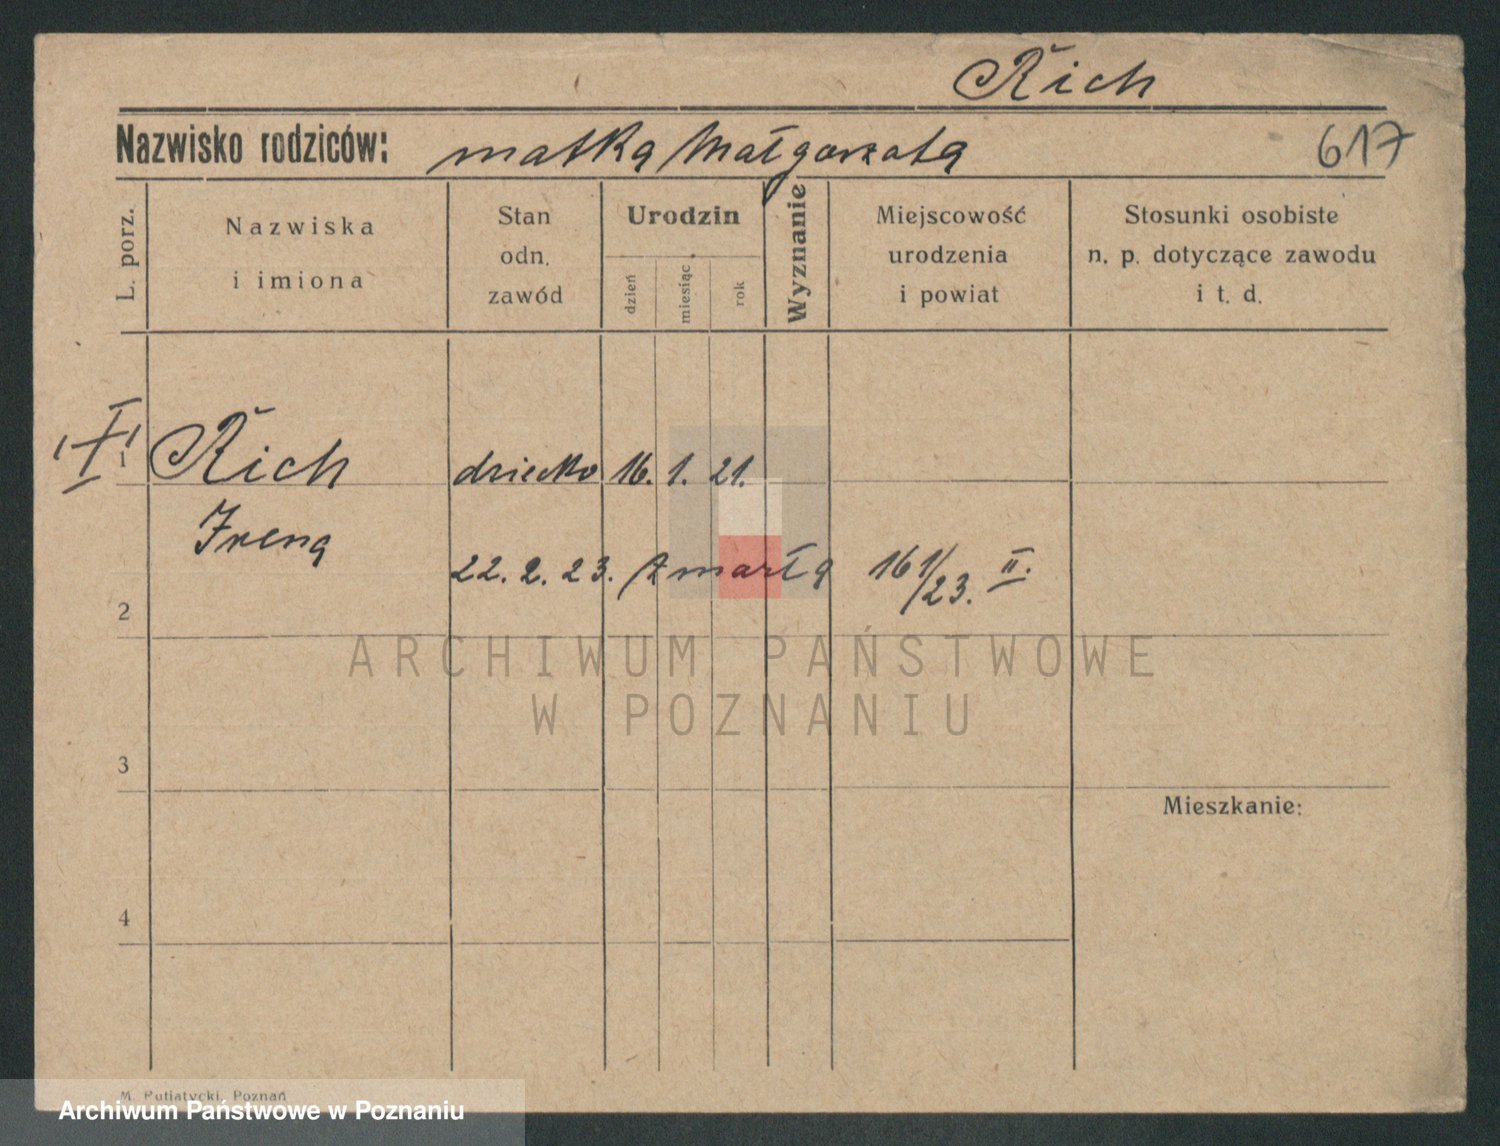 Rich
Nazwisko rodziców: matka Małgorzata 617
L. porz.
Nazwiska
i imiona
Stan
odn.
zawód
Urodzin
dzień
miesiąc
rok
Wyznanie
Miejscowość
urodzenia
i powiat
Stosunki osobiste
n. p. dotyczące zawodu
i t. d.
1 Rich dziecko 16. 1. 21.
Irena
22. 2. 23. zmarła 16 1/23. II.
2
ARCHIWUM PAŃSTWOWE
W POZNANIU
3
Mieszkanie:
4
M. Putiatycki, Poznań
Archiwum Państwowe w Poznaniu